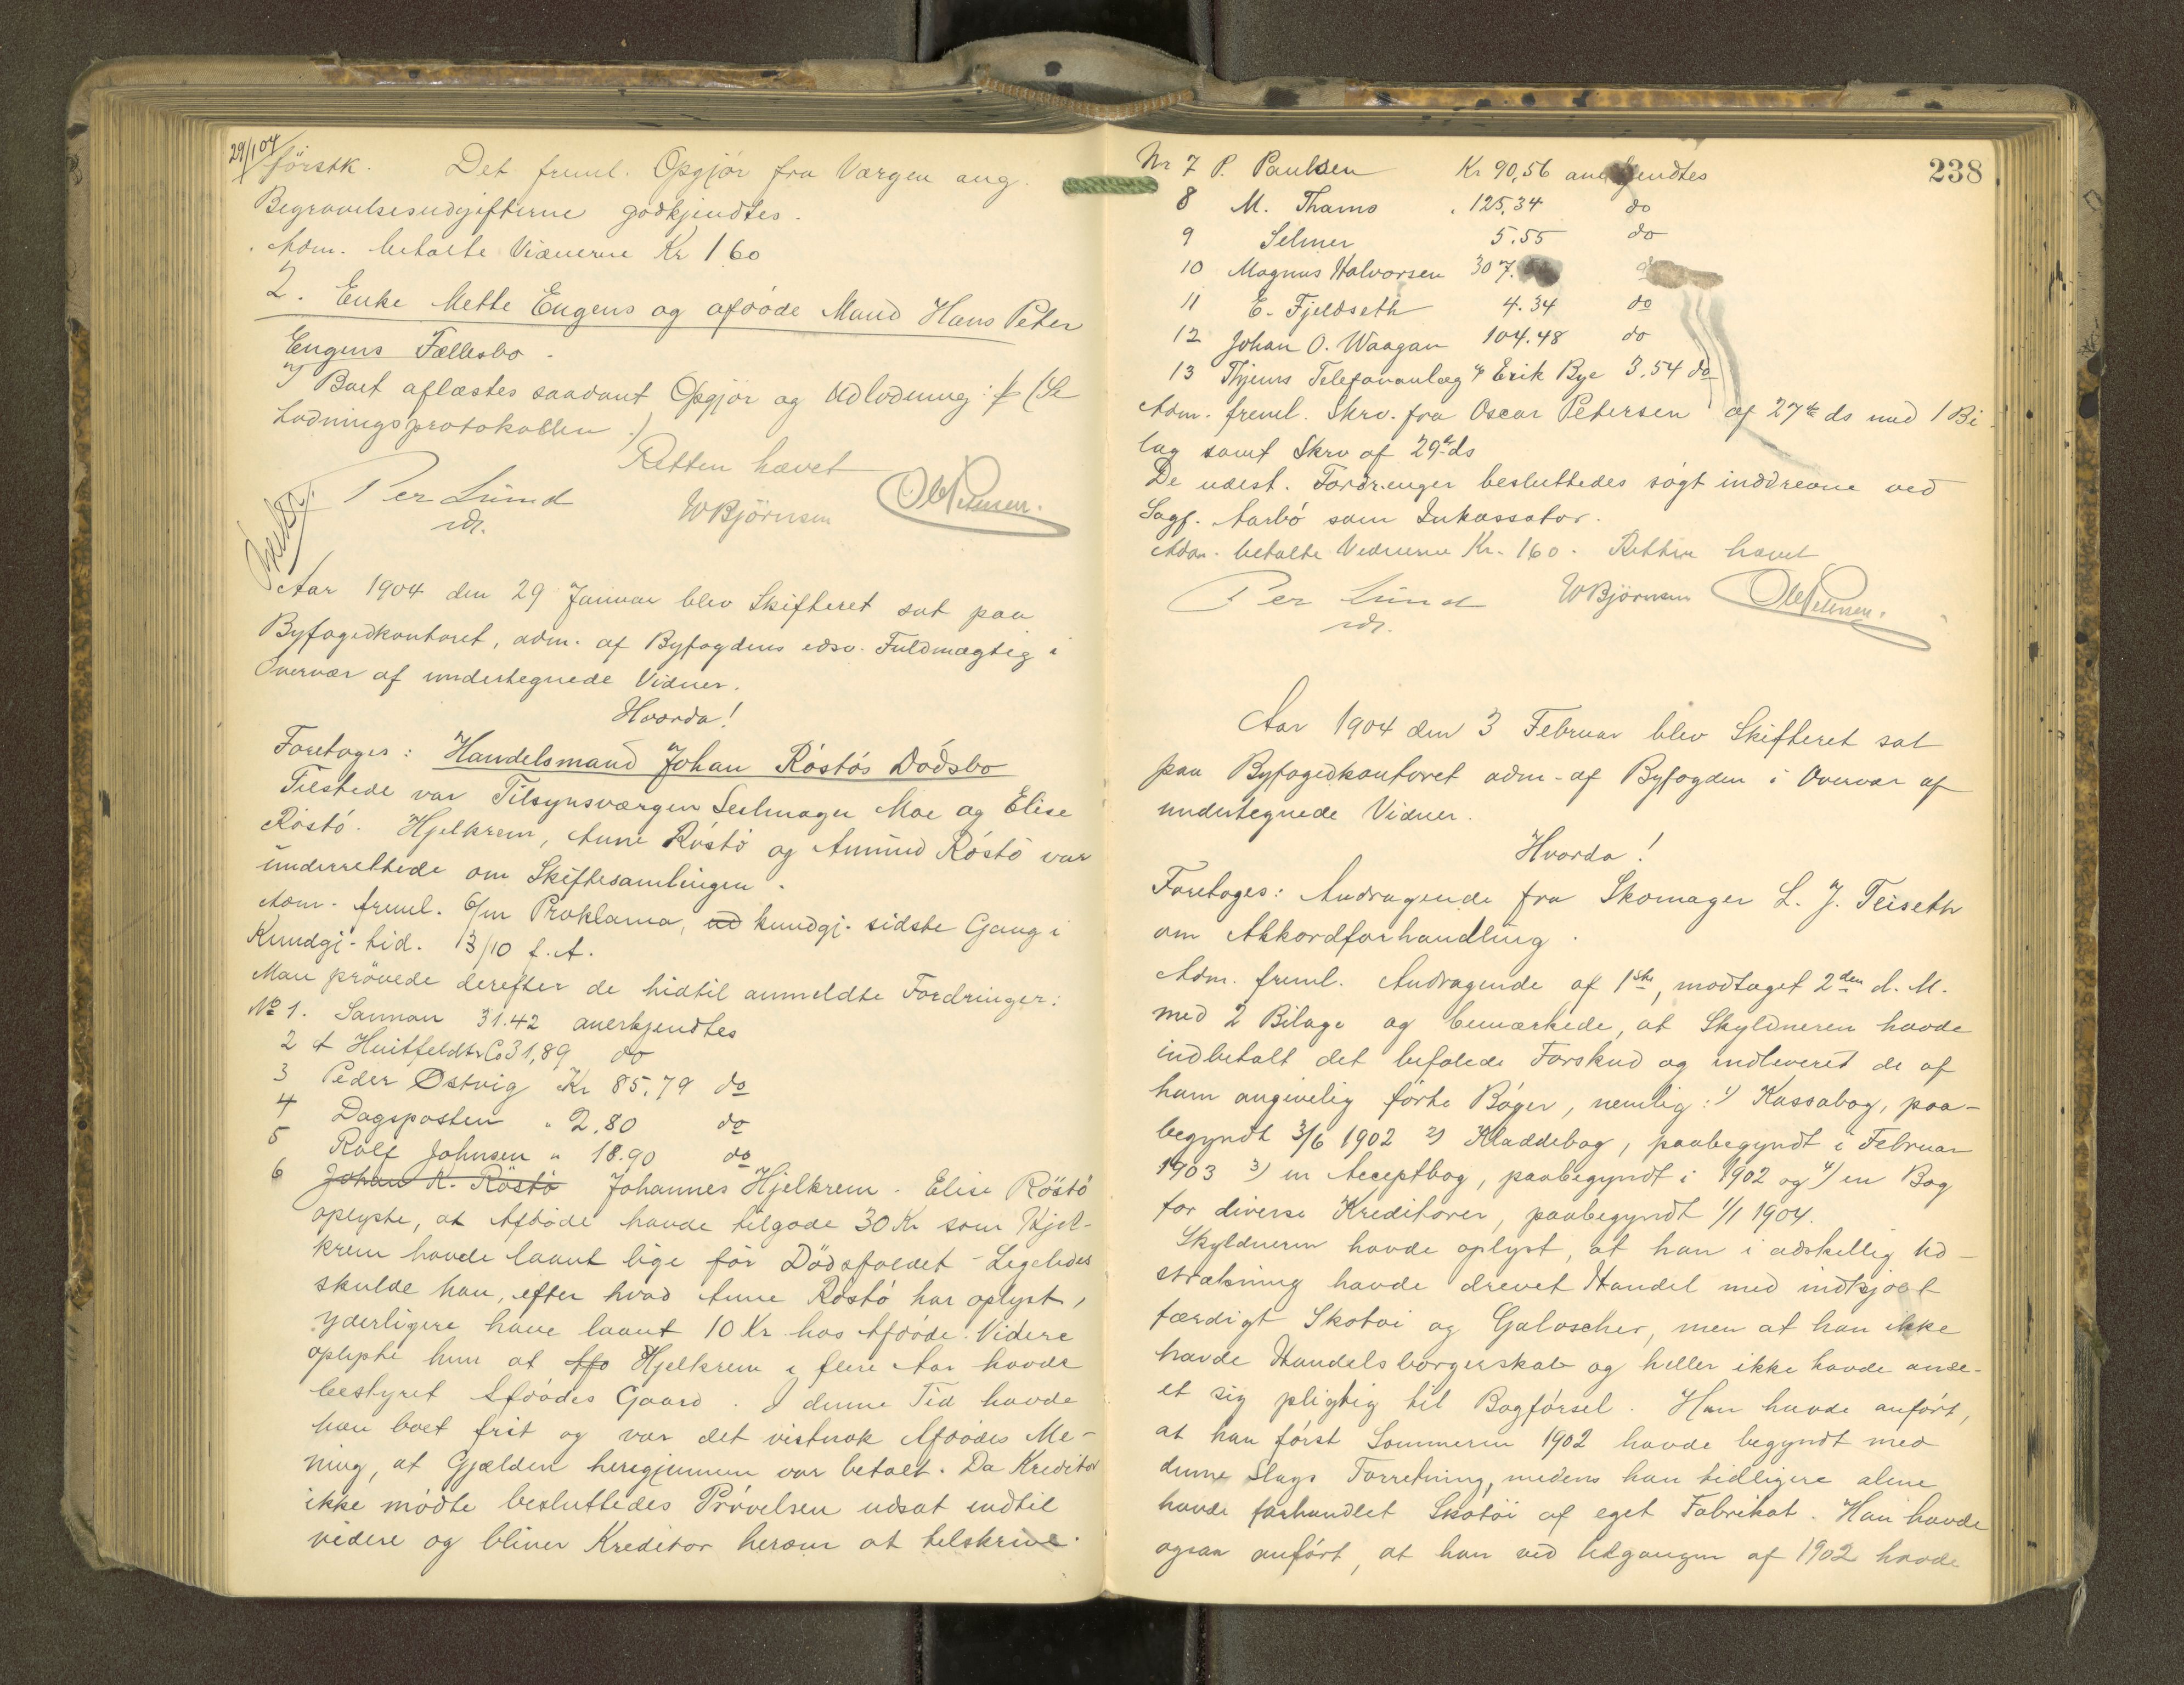 29/1 04
förstk. Det freml. Opgjör fra Værgen ang.
Begravelsesudgifterne godkjendtes.
Adm. betalte Vidnerne Kr 1 60
2. Enke Mette Engens og afdöde Mand Hans Peter
Engens Fællesbo.
I Boet aflæstes saadant Opgjör og Udlodning: (Se
Lodningsprotokollen.)
Retten hævet
Per Lund WBjörnsen
Aar 1904 den 29 Januar blev Skifteret sat paa
Byfogedkontoret, adm. af Byfogdens edsv. Fuldmægtig i
Overvær af undertegnede Vidner.
Hvorda!
Foretoges: Handelsmand Johan Röstös Dödsbo
Tilstede var Tilsynsværgen Seilmager Moe og Elise
Röstö. Hjelkrem, Anne Röstö og Amund Röstö var
underrettede om Skiftesamlingen.
Adm. freml. 6/m Proklama, ud kundgj. sidste Gang i
Kundgj-tid. 13/10 f. A.
Man prövede derefter de hidtil anmeldte Fordringer:
No 1. Sannan 31.42 anerkjendtes
2 A Huitfeldt & Co 31,89 do
3 Peder Østvig Kr 85,79 do
4 Dagsposten " 2.80 do
5 Rolf Johnsen " 18.90 do
6 Johan A. Röstö Johannes Hjelkrem. Elise Röstö
oplyste, at Afdöde havde tilgode 30 Kr som Hjel-
krem havde laant lige för Dödsfaldet - Ligeledes
skulde han, efter hvad Anne Röstö har oplyst,
yderligere have laant 10 Kr hos Afdöde. Videre
oplyste hun at Hjelkrem i flere Aar havde
bestyret Afdödes Gaard. I denne Tid havde
han boet frit og var det vistnok Afdödes Me-
ning, at Gjælden herigjennem var betalt. Da Kreditor
ikke mödte besluttedes Prövelsen udsat indtil
videre og bliver Kreditor herom at tilskrive.
238
Nr 7 P. Paulsen Kr 90,56 anerkjendtes
8 M. Thams " 125,34 do
9 Selmer 5.55 do
10 Magnus Halvorsen 307. do
11 E. Fjeldseth 4.34 do
12 Johan O. Waagan 104.48 do
13 Thjems Telefonanlæg v/ Erik Bye 3.54 do
Adm. freml. Skrv. fra Oscar Petersen af 27de ds med 1 Bi-
lag samt Skrv af 29de ds
De udest. Fordringer besluttedes sögt inddrevne ved
Sagf. Aarbö som Inkassator.
Adm. betalte Vidnerne Kr. 1 60. Retten hævet
Per Lund WBjörnsen
Aar 1904 den 3 Februar blev Skifteret sat
paa Byfogedkontoret adm. af Byfogden i Overvær af
undertegnede Vidner.
Hvorda!
Foretoges: Andragende fra Skomager L. J. Teiseth
om Akkordforhandling.
Adm. freml. Andragende af 1ste, modtaget 2den d. M.
med 2 Bilage og bemærkede, at Skyldneren havde
indbetalt det befalede Forskud og indleveret de af
ham angivelig förte Böger, nemlig: 1) Kassabog, paa-
begyndt 3/6 1902 2) Kladdebog, paabegyndt i Februar
1903 3) en Acceptbog, paabegyndt i 1902 og 4) en Bog
for diverse Kreditorer, paabegyndt 1/1 1904.
Skyldneren havde oplyst, at han i adskillig Ud-
strækning havde drevet Handel med indkjöbt
færdigt Skotöi og Galoscher, men at han ikke
havde Handelsborgerskab og heller ikke havde anse-
et sig pligtig til Bogförsel. Han havde anfört,
at han först Sommeren 1902 havde begyndt med
denne Slags Forretning, medens han tidligere alene
havde forhandlet Skotöi af eget Fabrikat. Han havde
ogsaa anfört, at han ved Udgangen af 1902 havde